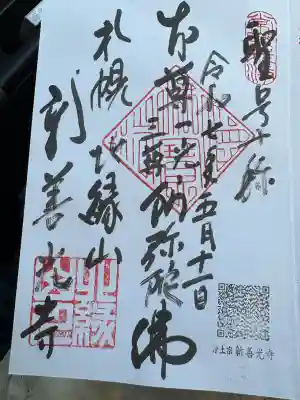 聖号十称
令和七年五月十一日
本尊一光
三尊阿弥陀佛
札幌北縁山
新善光寺
浄土宗 新善光寺